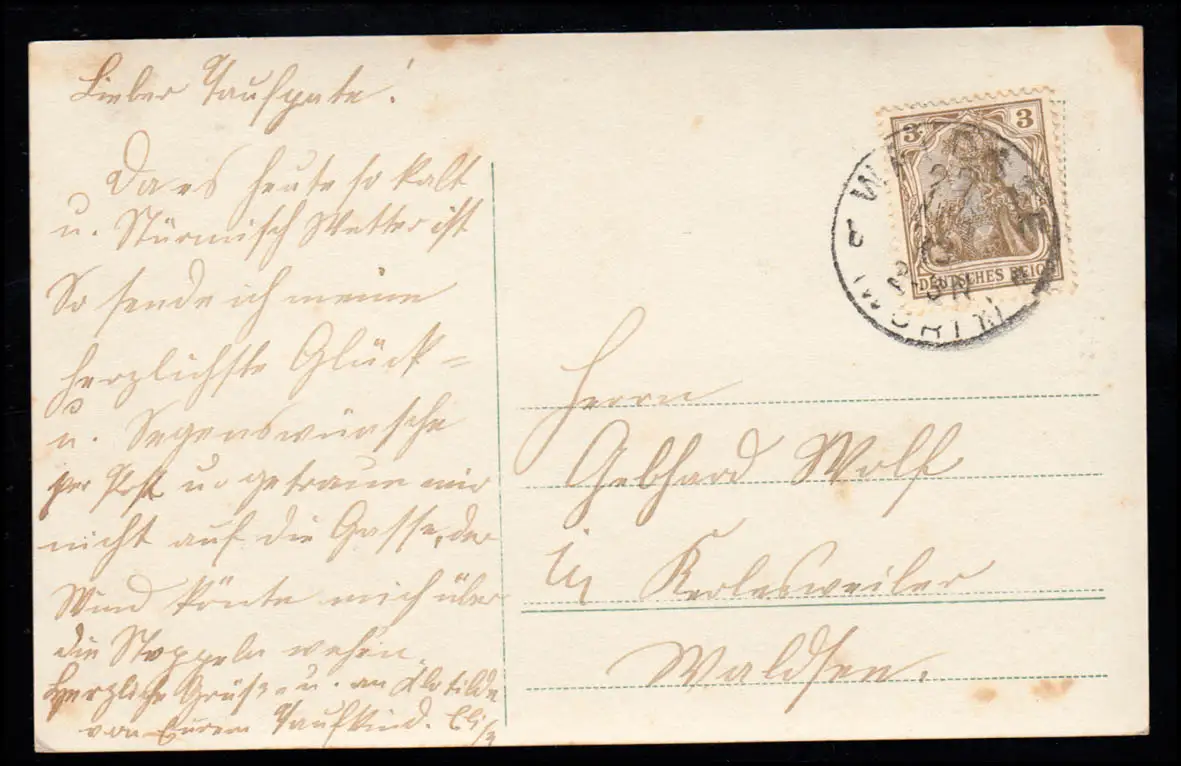 Lieber Taufpate!
Da es heute so kalt
u. Stürmisch Wetter ist
So sende ich meine
herzlichste Glück=
u. Segenswünsche
per Post u. getraum mir
nicht auf die Gasse, der
Wind könte mich über
die Stoppeln wehen
Herzliche Grüße u. an Klotilde
von Eurem Taufkind. Elis
3 3
DEUTSCHES REICH
Herrn
Gebhard Wolf
in
Waldsee.